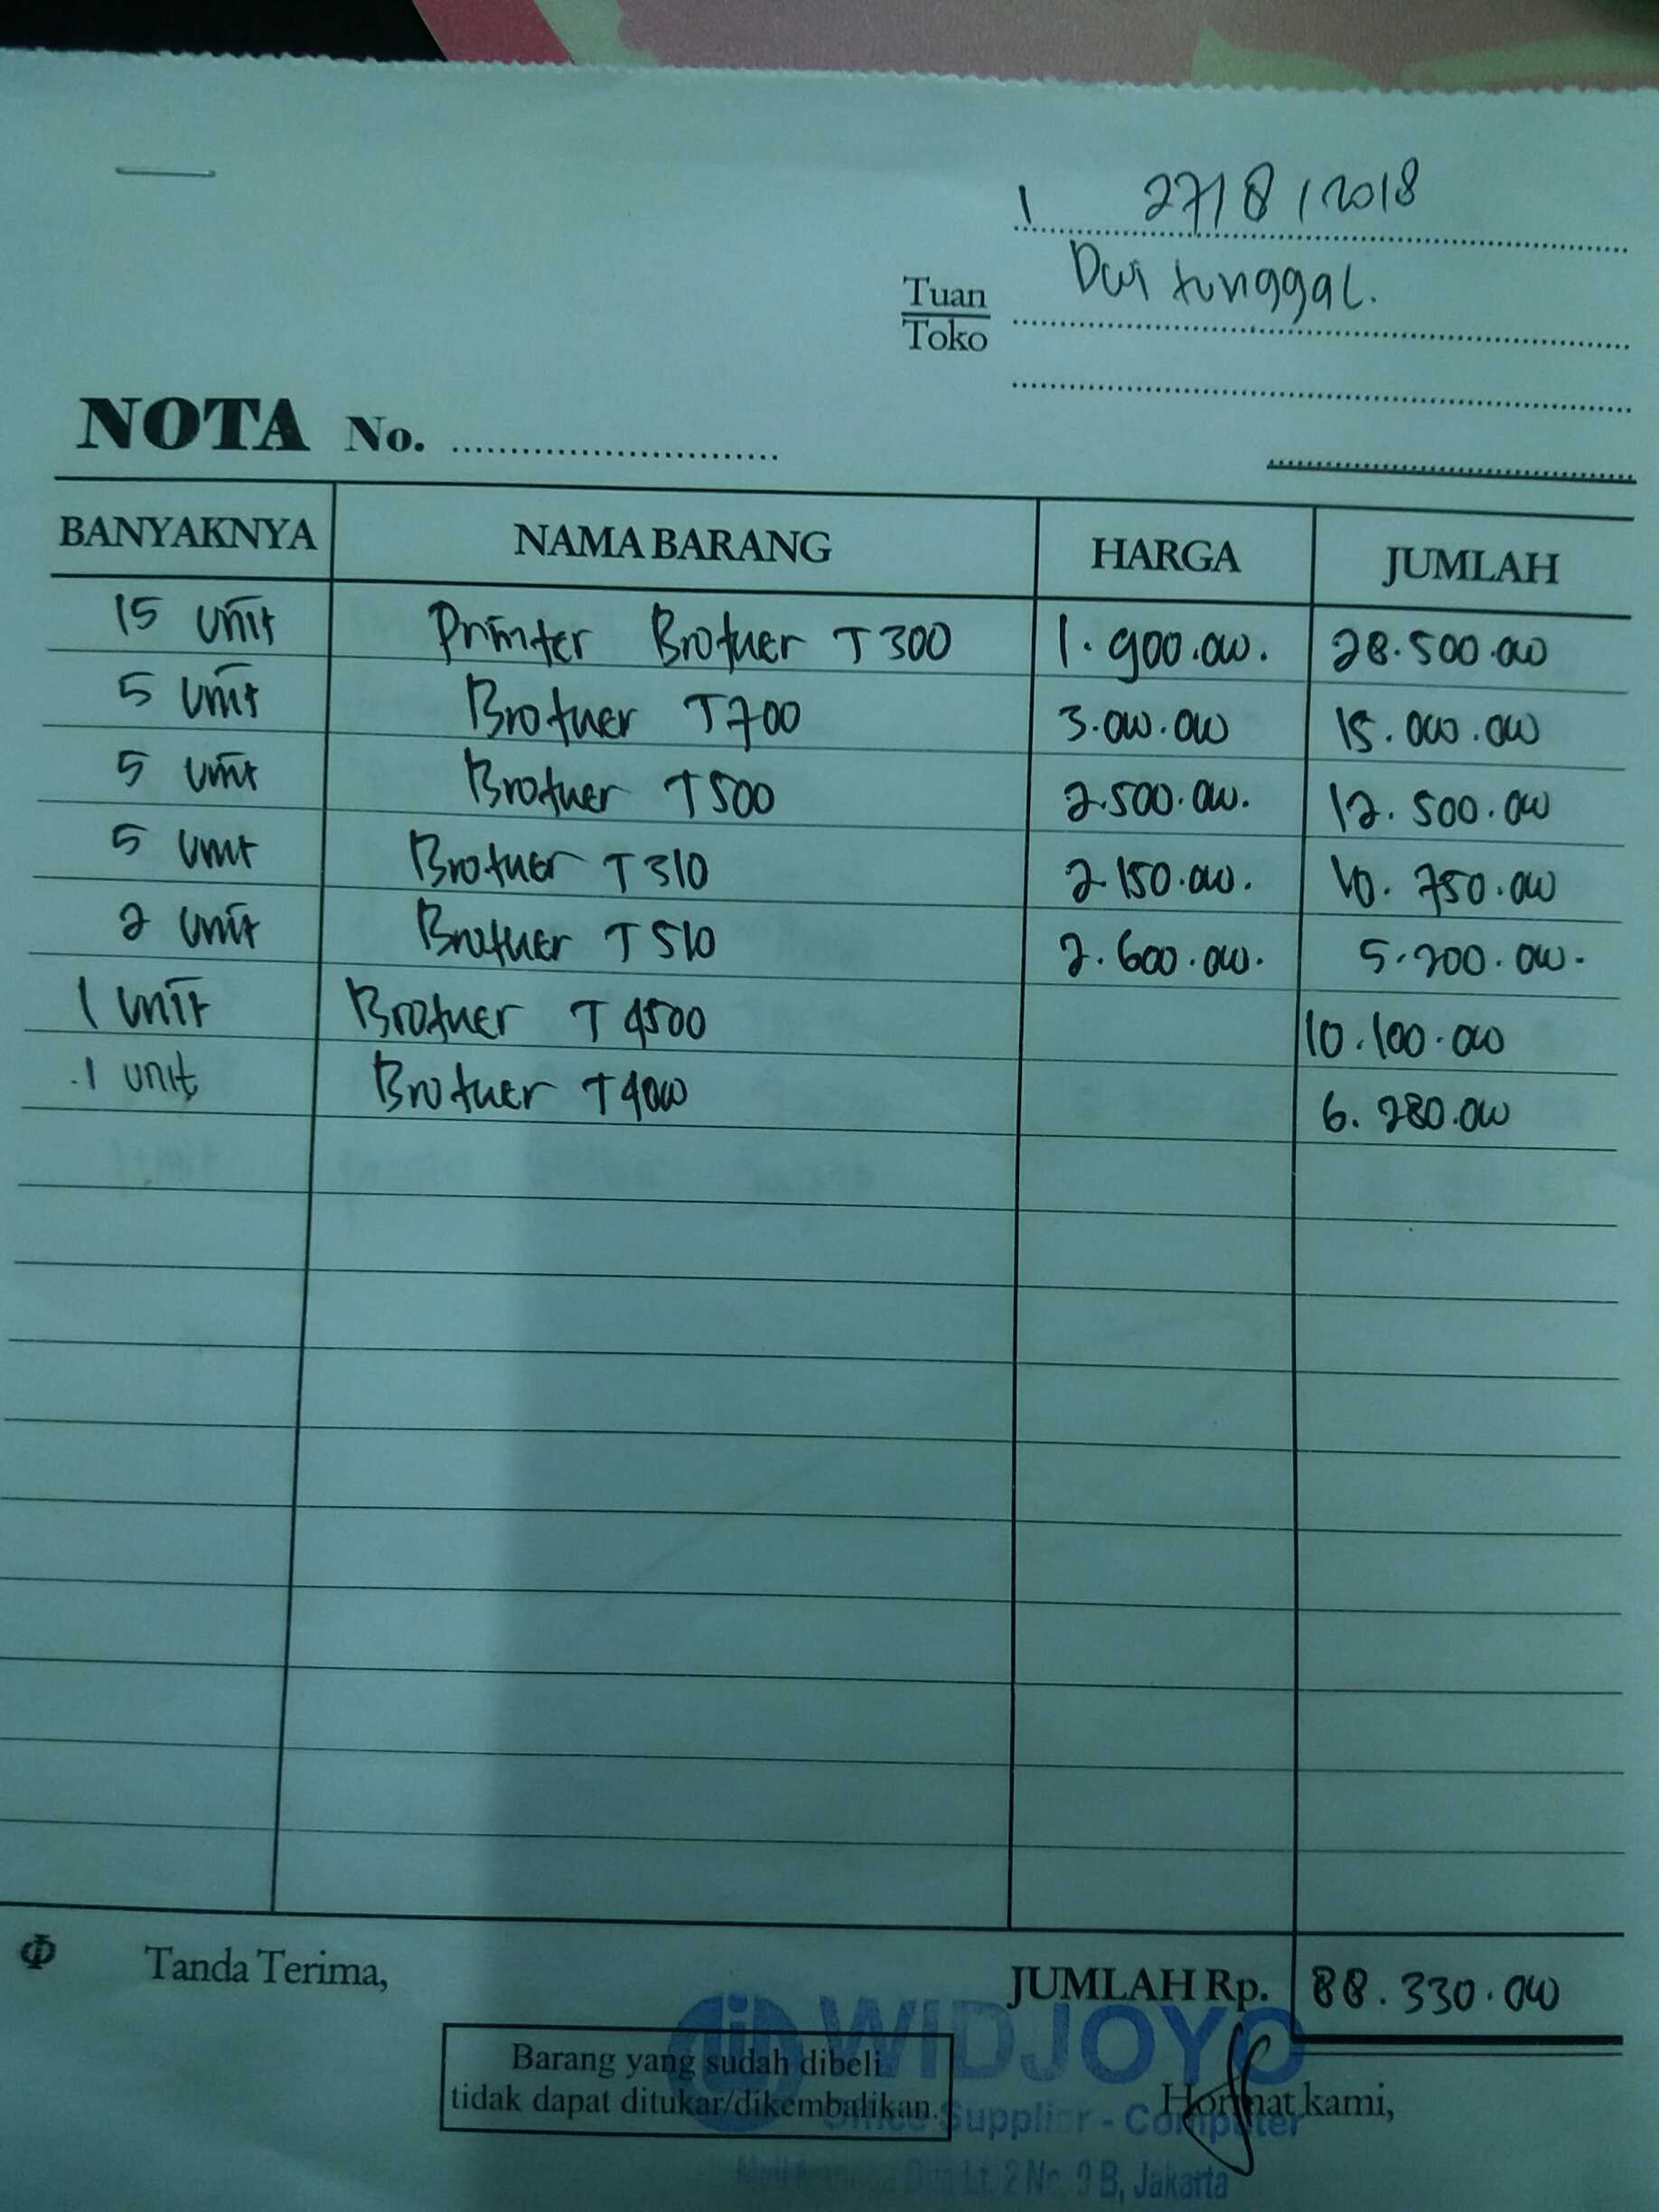 27/8/2018
Tuan Dwi tunggal.
Toko
NOTA No.
BANYAKNYA NAMA BARANG HARGA JUMLAH
15 unit Printer Brother T300 1.900.000. 28.500.000
5 unit Brother T700 3.000.000 15.000.000
5 unit Brother T500 2.500.000. 12.500.000
5 unit Brother T310 2.150.000. 10.750.000
2 unit Brother T510 2.600.000. 5.200.000.
1 unit Brother T4500 10.100.000
1 unit Brother T4000 6.280.000
Tanda Terima, JUMLAH Rp. 88.330.000
WIDJOYO
Barang yang sudah dibeli
tidak dapat ditukar/dikembalikan.
Hormat kami,
Office Supplier - Computer
Lt. 2 No. 9 B, Jakarta